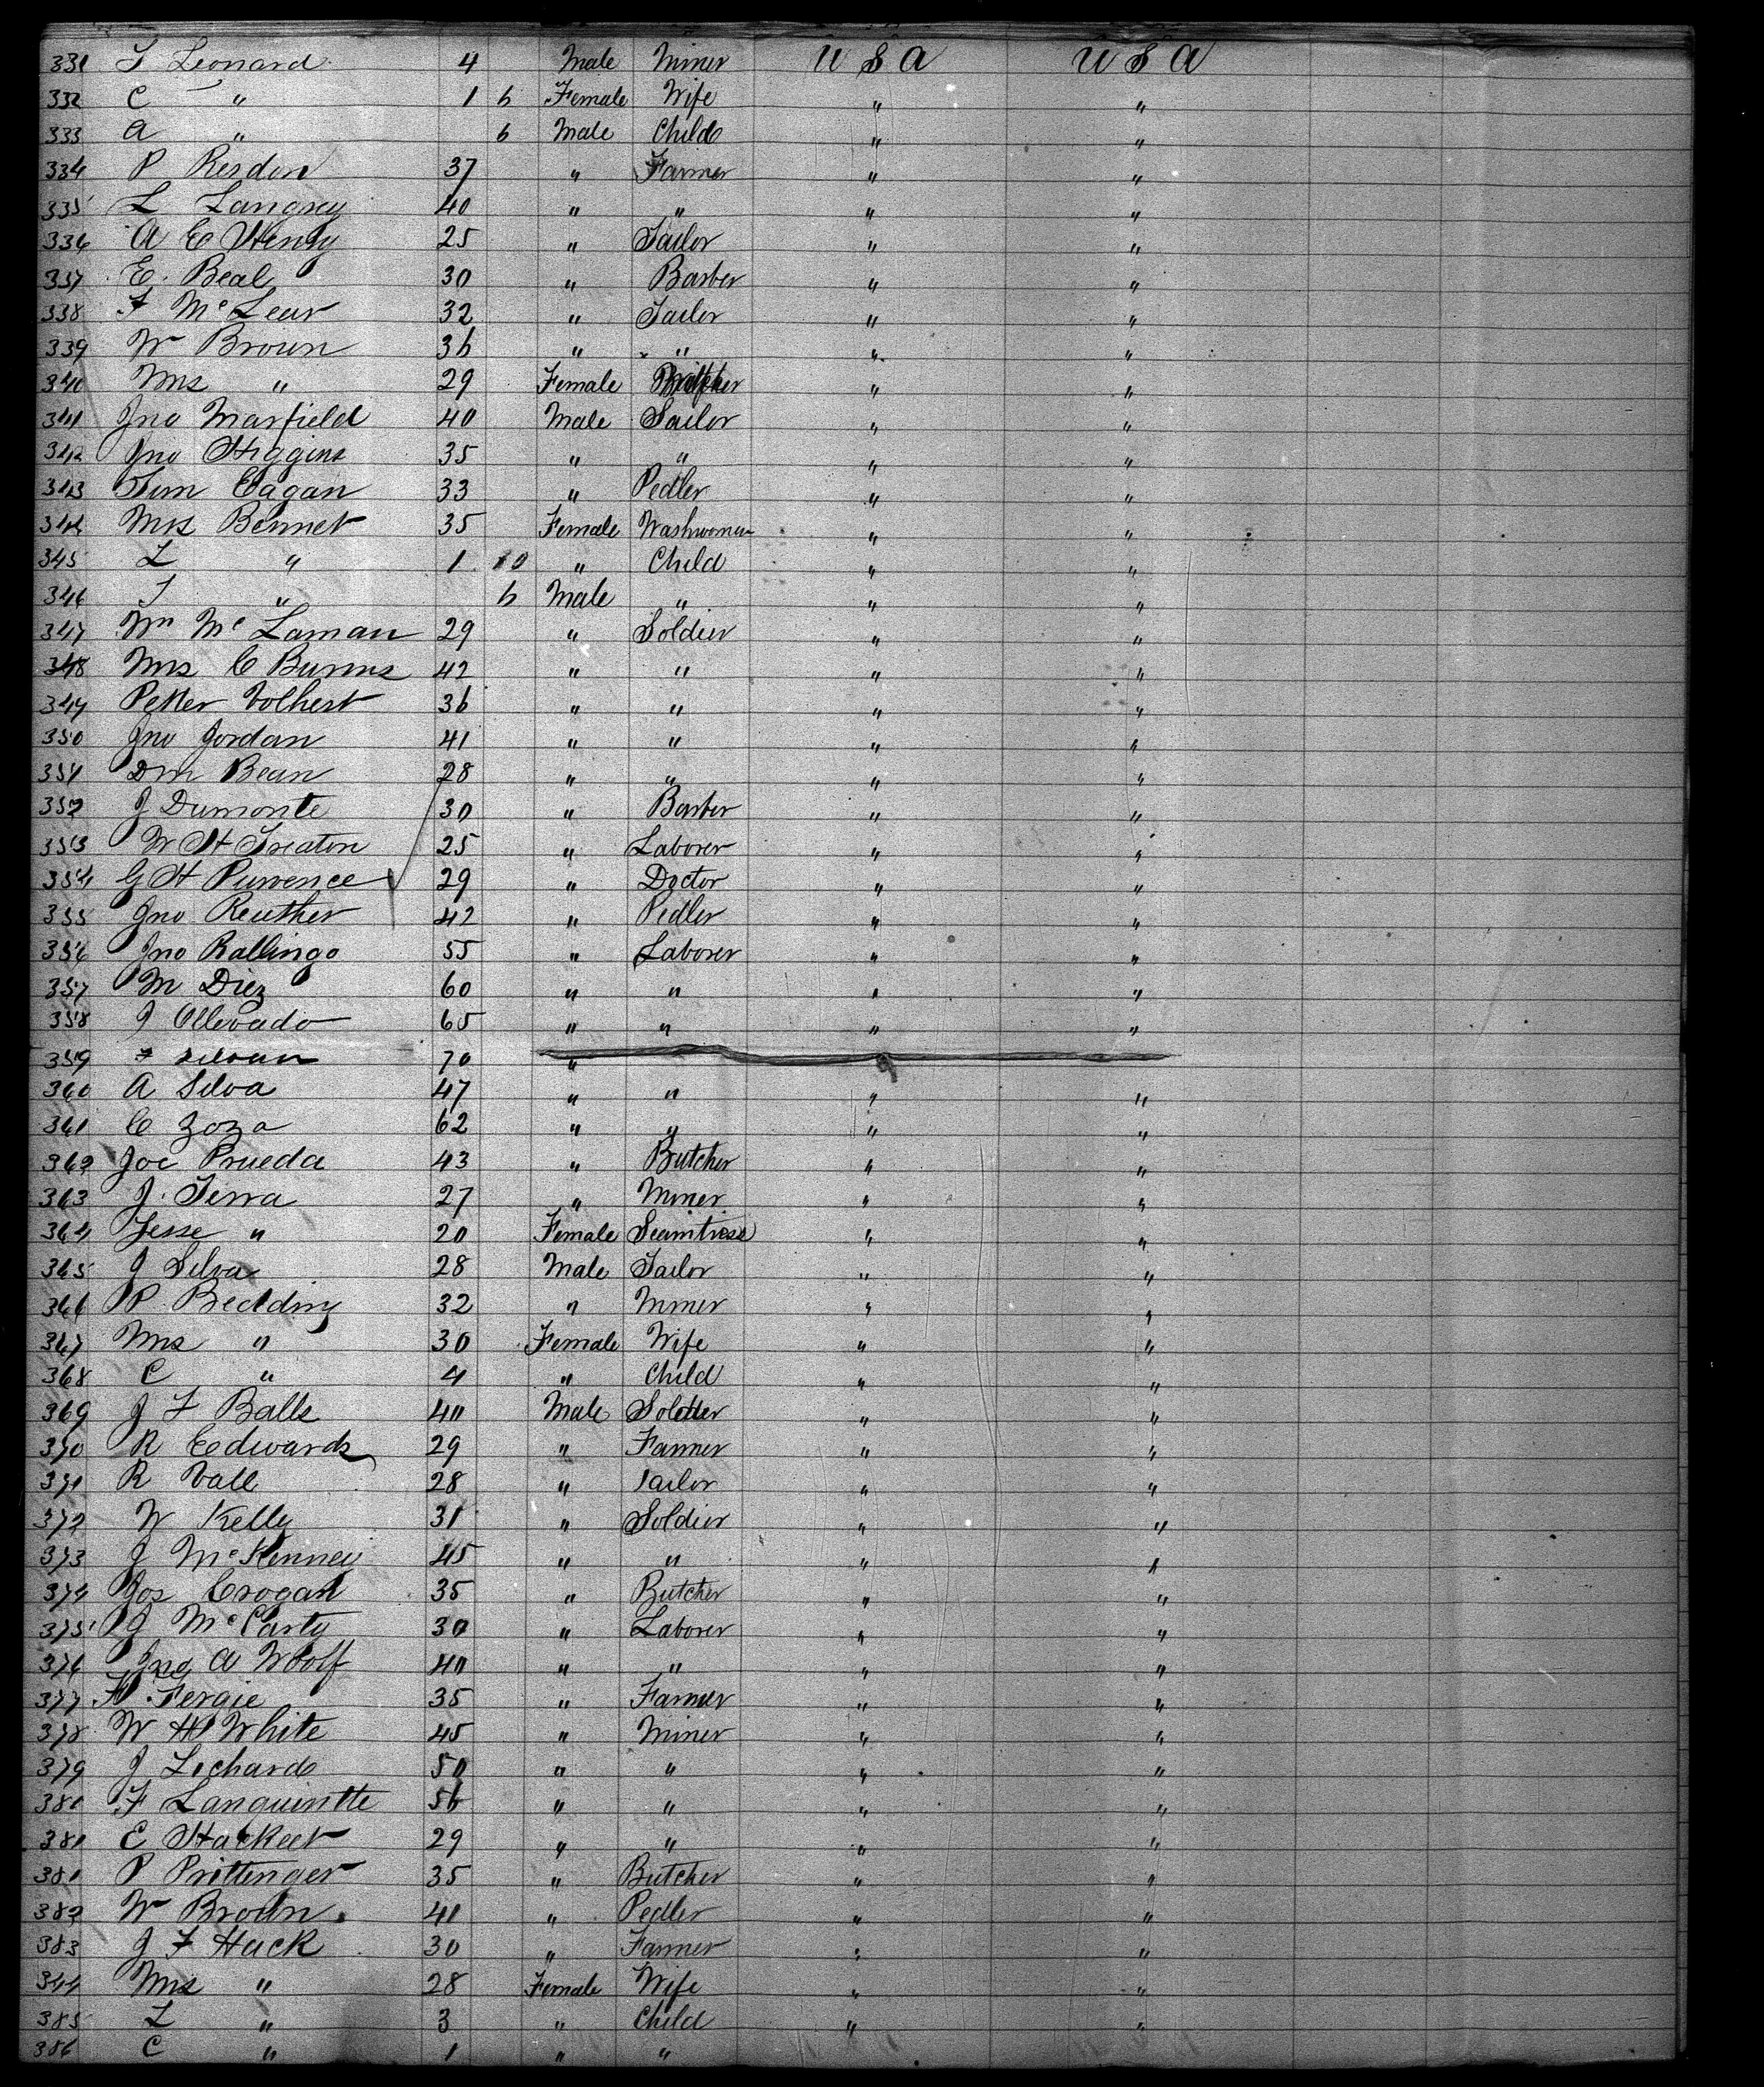 331 T Leonard 4 Male Miner U S A U S A
332 C " 1 6 Female Wife " "
333 A " 6 Male Child " "
334 P Resdon 37 " Farmer " "
335 L Langrey 40 " " " "
336 A E Henry 25 " Tailor " "
337 E. Beal 30 " Barber " "
338 F McLear 32 " Tailor " "
339 W Brown 36 " " " "
340 Mrs " 29 Female " "
341 Jno Marfield 40 Male Sailor " "
342 Jno Higgins 35 " " " "
343 Tim Eagan 33 " Pedler " "
344 Mrs Bennet 35 Female Washwoman " "
345 L " 1 10 " Child " "
346 T " 6 Male " " "
347 Wm McLaman 29 " Soldier " "
348 Mrs C Burns 42 " " " "
349 Petter Volhest 36 " " " "
350 Jno Jordan 41 " " " "
351 Dm Bean 28 " " " "
352 J Dumonte 30 " Barber " "
353 W H Treaton 25 " Laborer " "
354 G H Purvence 29 " Doctor " "
355 Jno Reuther 42 " Pedler " "
356 Jno Rallingo 55 " Laborer " "
357 M Diez 60 " " " "
358 J Ollevado 65 " " " "
359 F 70 "
360 A Silva 47 " " " "
361 C Zoza 62 " " " "
362 Joe Prueda 43 " Butcher " "
363 J. Terra 27 " Miner " "
364 Jesse " 20 Female Seamtress " "
365 J Silva 28 Male Tailor " "
366 P. Bedding 32 " Miner " "
367 Mrs " 30 Female Wife " "
368 C " 4 " Child " "
369 J F Balls 40 Male Soldier " "
370 R Edwards 29 " Farmer " "
371 R Vall 28 " Tailor " "
372 W Kelly 31 " Soldier " "
373 J McKenney 45 " " " "
374 Jos Crogan 35 " Butcher " "
375 J McCarty 30 " Laborer " "
376 Jno A Woolf 40 " " " "
377 H Fergie 35 " Farmer " "
378 W H White 45 " Miner " "
379 J Lichard 50 " " " "
380 F Lanquintte 56 " " " "
381 E Hackeet 29 " " " "
381 P Prittenger 35 " Butcher " "
382 W Brown 41 " Pedler " "
383 J F Hack 30 " Farmer " "
344 Mrs " 28 Female Wife " "
385 L " 3 " Child " "
386 C " 1 " "